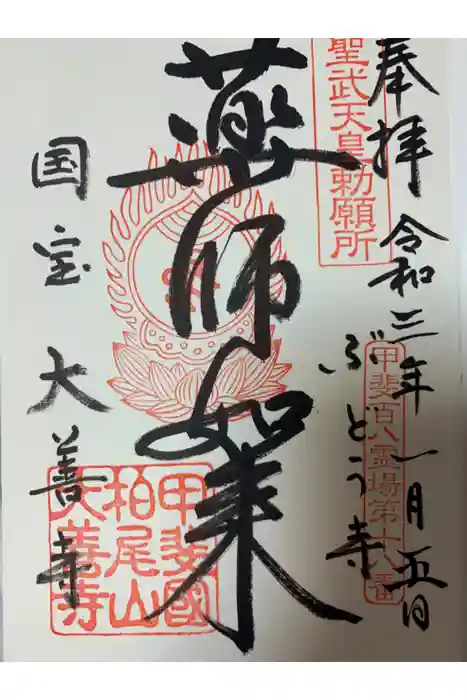 奉拝 令和三年一月五日
聖武天皇勅願所
甲斐百八霊場第十八番
ぶどう寺
薬師如来
国宝大善寺
甲斐國
柏尾山
大善寺